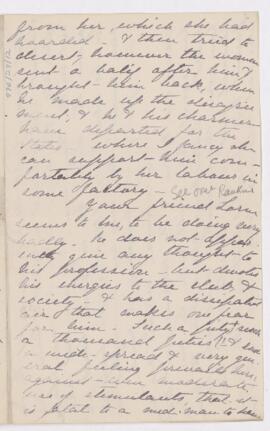 from her, which she had
hoarded - & then tried to
desert, however the women
sent a baliff after him &
brought him back, when
he made up the disagree
ment, & he & his charmer
have departed for the
States where I fancy she
can support him com-
fortably by her labour in
some factory - See over
Your friend
seems to me, to be doing very
badly. He does not appar-
ently give any thought to
his profession - but devotes
his energies to the club, &
society - & has a dissipated
air that makes one fear
for him. Such a pity
a thousand pities!! & such
a wide-spread & very gen-
eral feeling prevails here
against
use of stimulants, that it
is fatal to a med. man to have